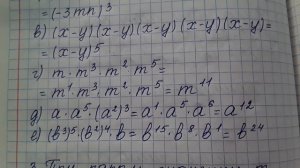 = (-3mn)³
в) (x-y)(x-y)(x-y)(x-y)(x-y)=
= (x-y)⁵
г) m · m³ · m² · m⁵ =
= m¹ · m³ · m² · m⁵ = m¹¹
д) a · a⁵ · (a²)³ = a¹ · a⁵ · a⁶ = a¹²
е) (b³)⁵ (b²)⁴ · b = b¹⁵ · b⁸ · b¹ = b²⁴